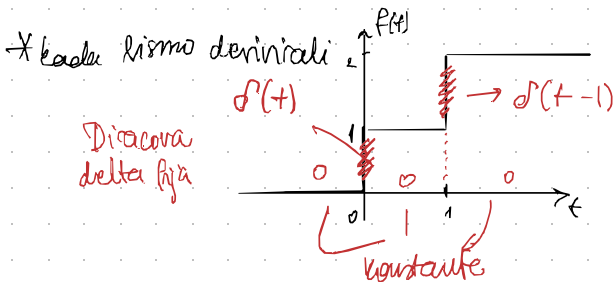 *kada bismo derivirali
f(t)
2
δ(t)
→ δ(t-1)
1
Diracova
delta fja
0 0 0
0 1 t
konstante